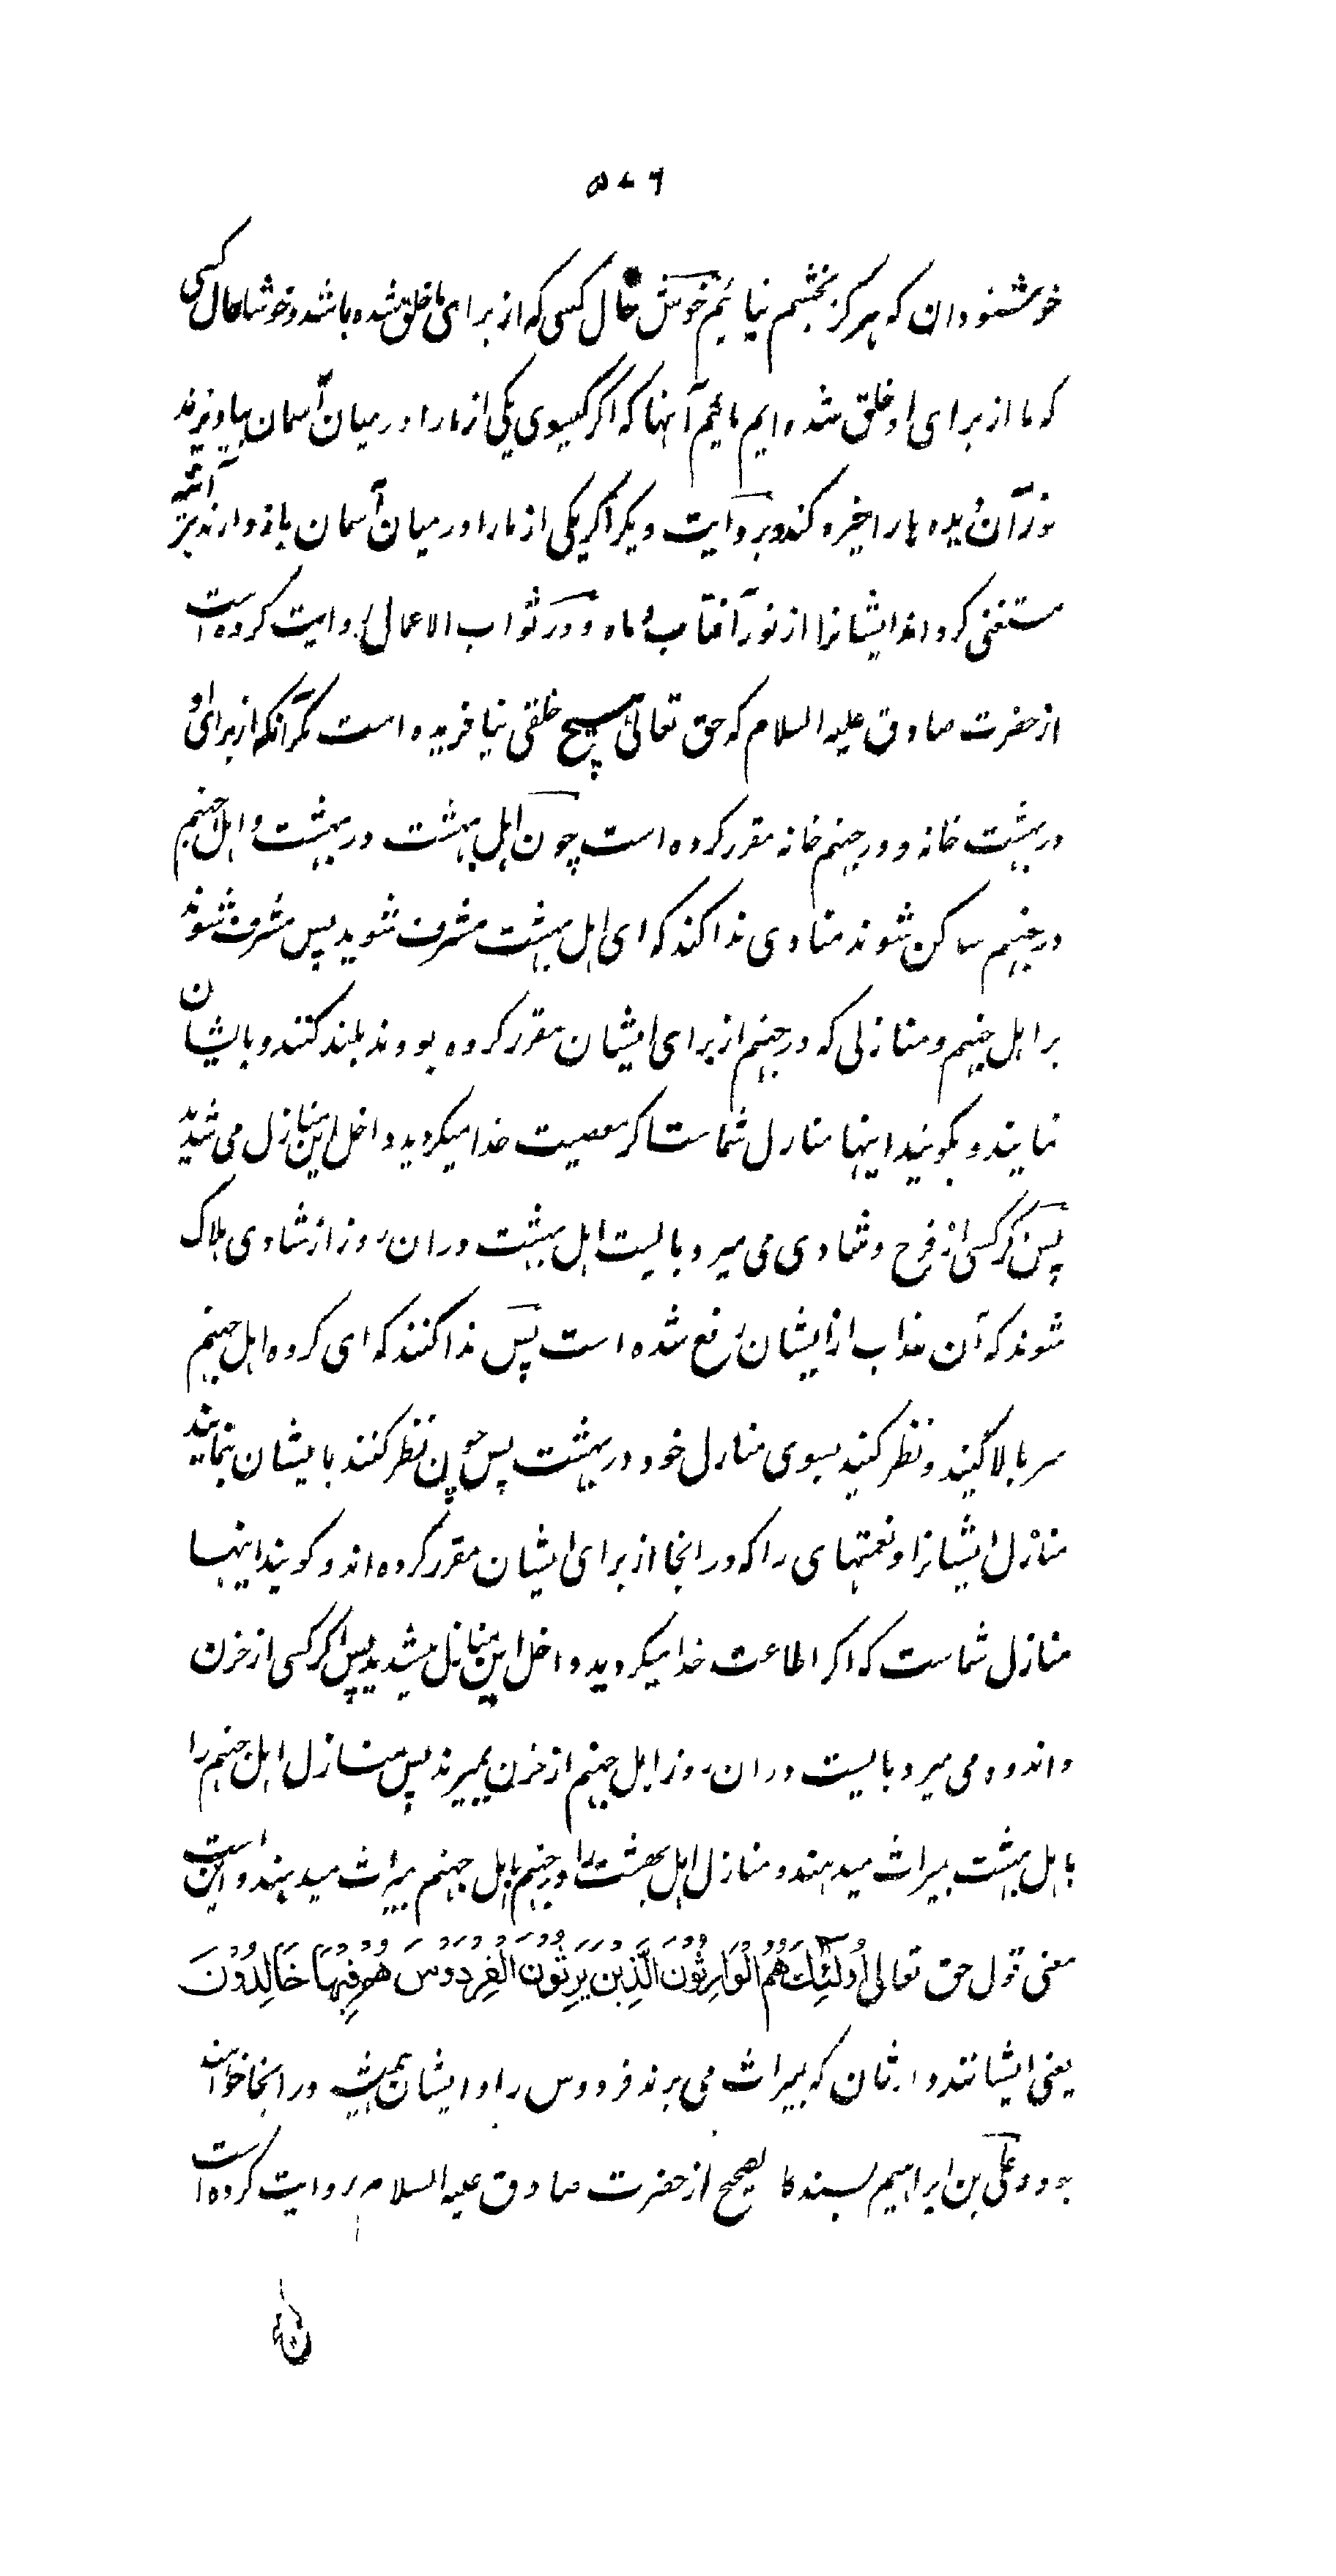 ۵۷۶
خوشنودان که هرگز بخشم نیائیم خوش حال کسی که از برای ما خلق شده باشد و خوشا حال کسی
که ما از برای او خلق شده ایم مائیم آنها که اگر گیسوی یکی از ما را در میان آسمان بیاویزند
نور آن دیده ها را خیره کند و بروایت دیگر اگر یکی از ما را در میان آسمان باز دارند هر آئینه
مستغنی گرداند ایشانرا از نور آفتاب و ماه و در ثواب الاعمال روایت کرده است
از حضرت صادق علیه السلام که حق تعالی هیچ خلقی نیافریده است مگر آنکه از برای او
در بهشت خانه و در جهنم خانه مقرر کرده است چون اهل بهشت در بهشت و اهل جهنم
در جهنم ساکن شوند منادی ندا کند که ای اهل بهشت مشرف شوید پس مشرف شوند
بر اهل جهنم و منازلی که در جهنم از برای ایشان مقرر کرده بودند بلند کنند و بایشان
نمایند و بگویند اینها منازل شماست اگر معصیت خدا میکردید داخل این منازل می شدید
پس گر کسی از فرح و شادی می میرد بایست اهل بهشت در ان روز از شادی هلاک
شوند که آن عذاب از ایشان رفع شده است پس ندا کنند که ای گروه اهل جهنم
سر بالا کنید و نظر کنید بسوی منازل خود در بهشت پس چون نظر کنند بایشان بنمایند
منازل ایشانرا و نعمتهای را که در انجا از برای ایشان مقرر کرده اند و گویند اینها
منازل شماست که اگر اطاعت خدا میکردید داخل این منازل میشدید پس اگر کسی از حزن
و اندوه می میرد بایست در ان روز اهل جهنم از حزن بمیرند پس منازل اهل جهنم را
باهل بهشت بمیراث میدهند و منازل اهل بهشت را در جهنم باهل جهنم بمیراث میدهند و این است
معنی قول حق تعالی أُولَئِكَ هُمُ الْوَارِثُونَ الَّذِينَ يَرِثُونَ الْفِرْدَوْسَ هُمْ فِيهَا خَالِدُونَ
یعنی ایشانند وارثان که بمیراث می برند فردوس را و ایشان همیشه در انجا خواهند
بود و علی بن ابراهیم بسند کا لصحیح از حضرت صادق علیه السلام روایت کرده است